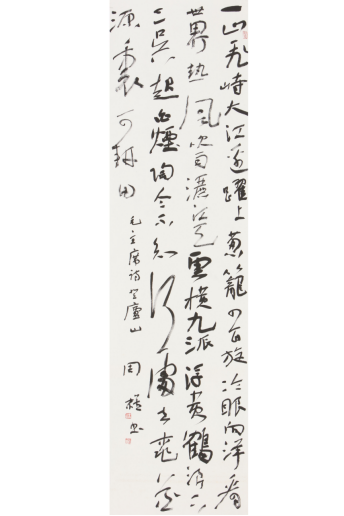 一山飛峙大江邊躍上蔥籠四百旋冷眼向洋看
世界熱風吹雨灑江天雲橫九派浮黃鶴浪下
三吴起白煙陶令不知何處去桃花
源裏可耕田
毛主席詩登廬山
周 书